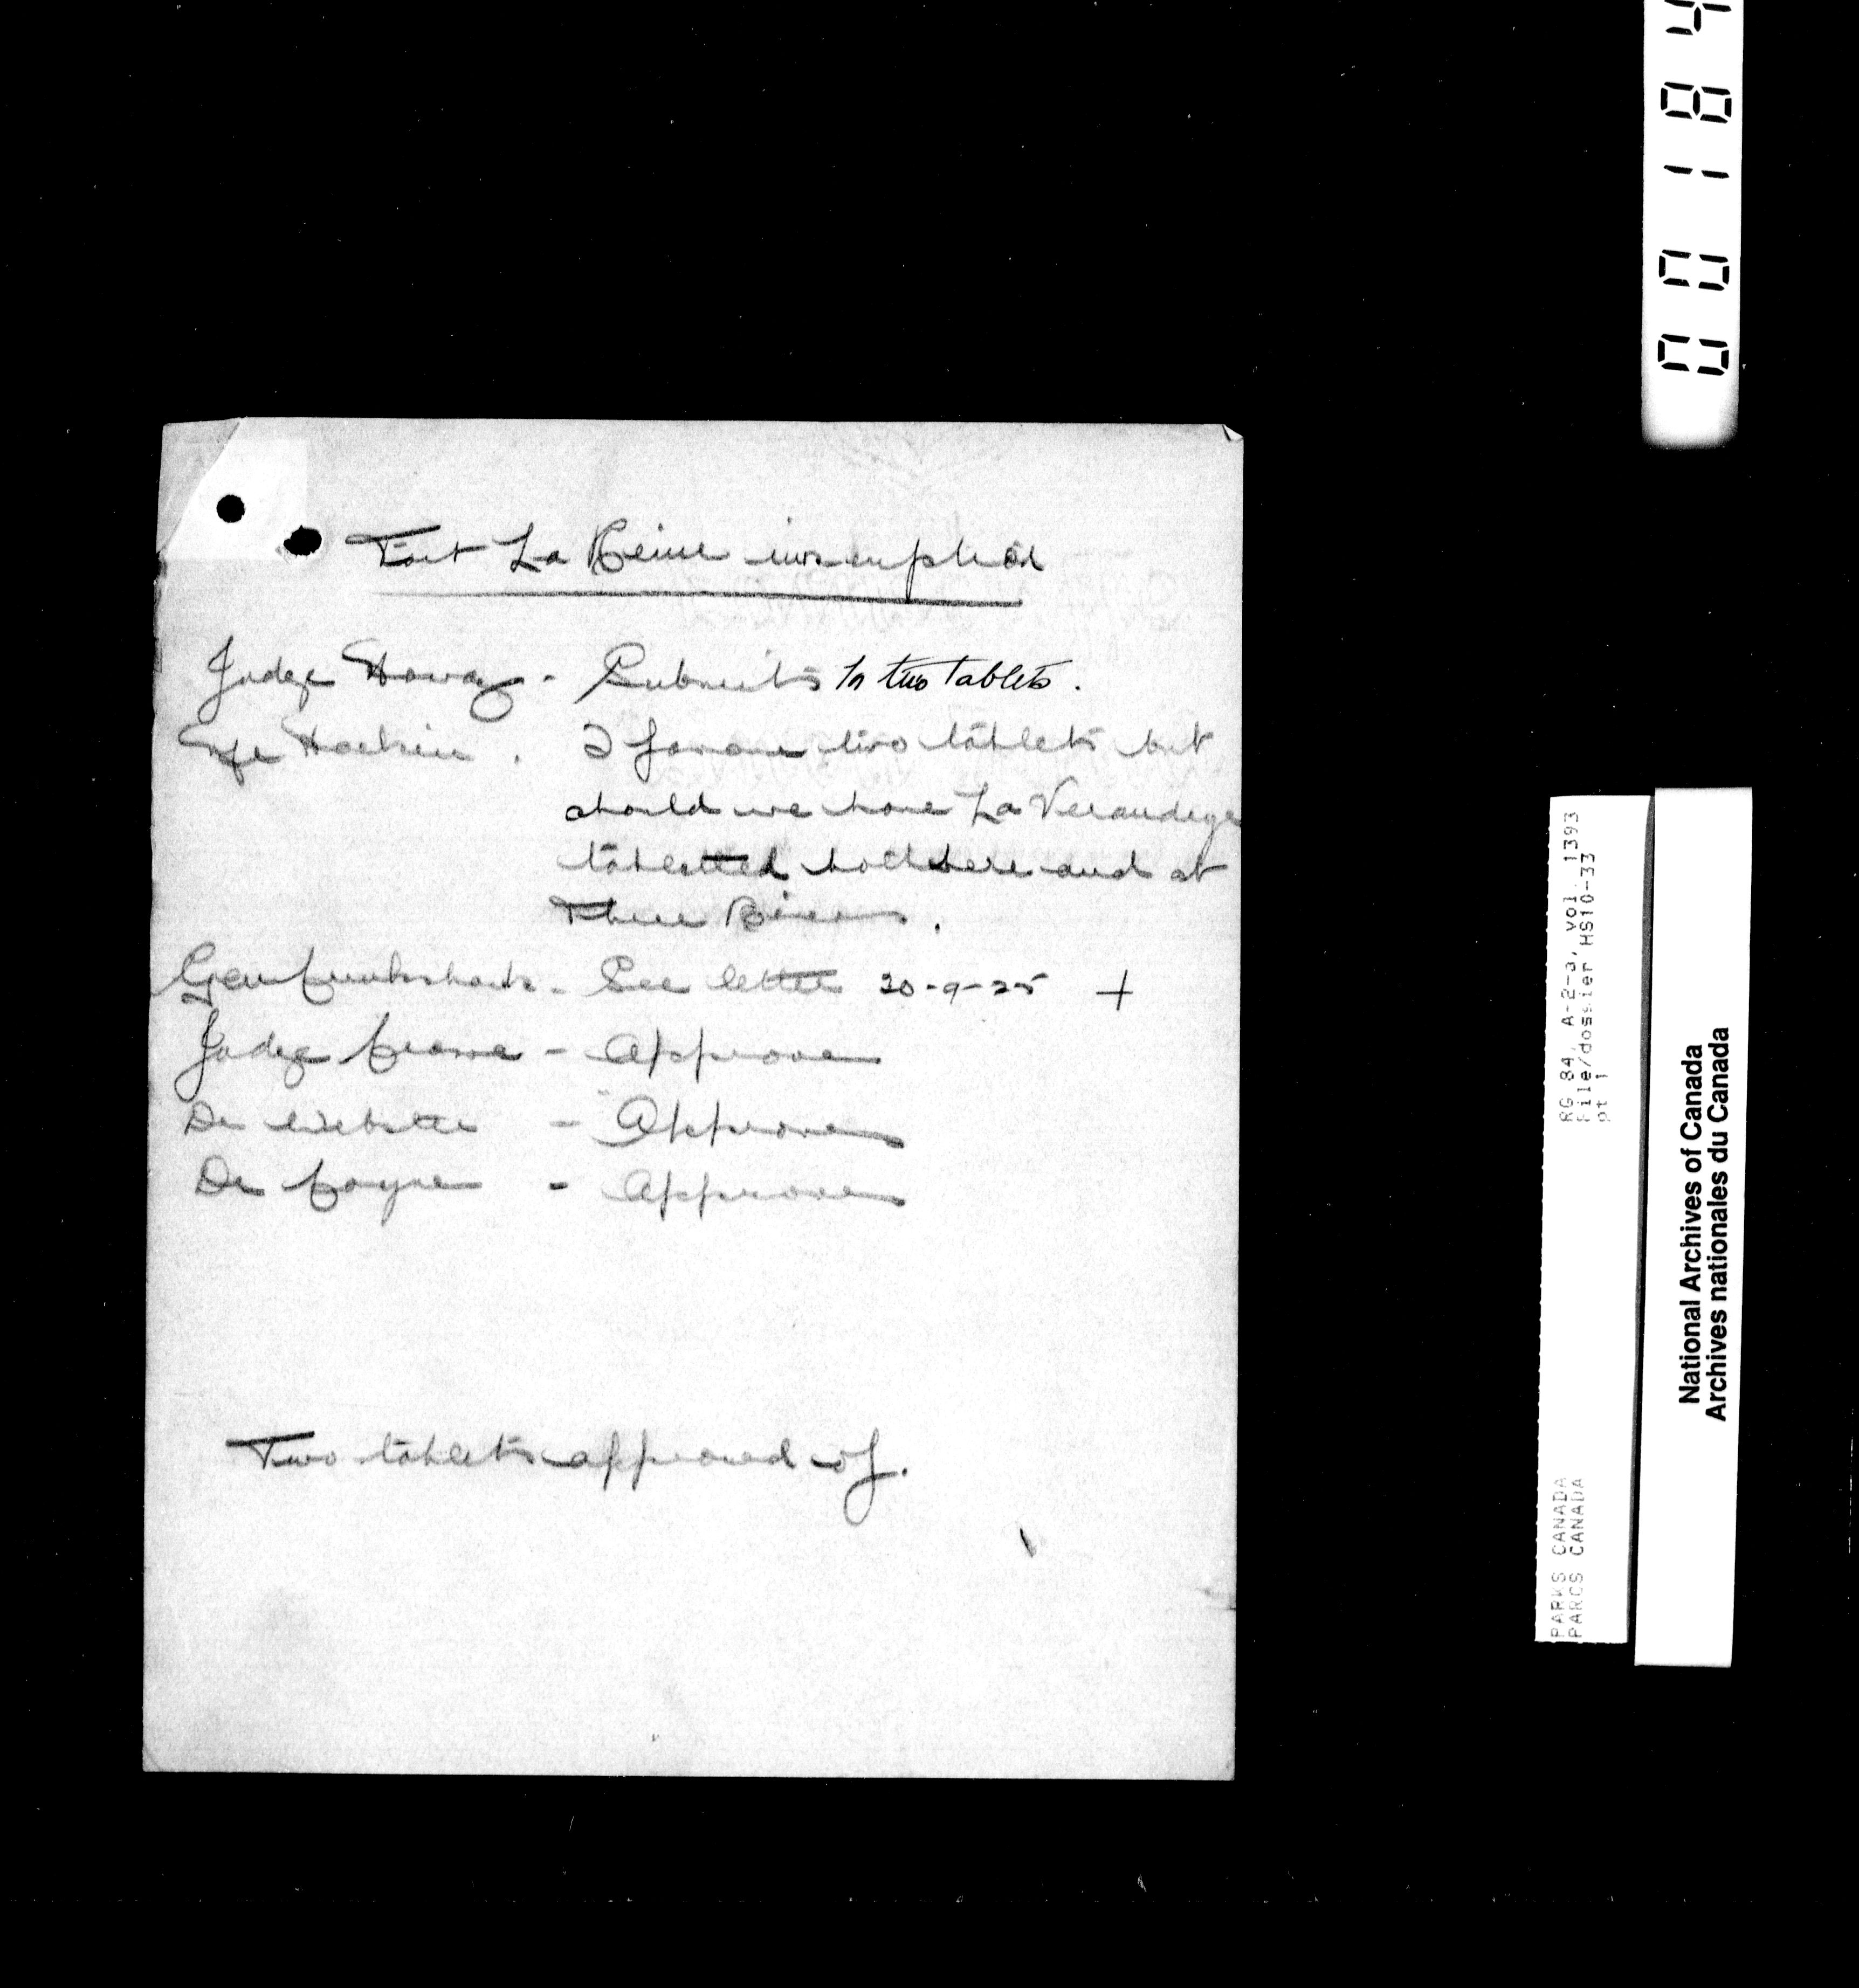 Fort La Reine inscription
Judge Howay - Submits to two tablets.
Mr Harkin. I favour two tablets but
should we have La Verandrye
tabletted both here and at
Three Rivers.
Gen Cruikshank - See letter 30-9-25 +
Judge Crowe - Approves
Dr Webster - Approves
Dr Coyne - Approves
Two tablets approved of.
00184
RG 84, A-2-a, vol. 1393
File/dossier HS10-33
pt 1
PARKS CANADA
PARCS CANADA
National Archives of Canada
Archives nationales du Canada